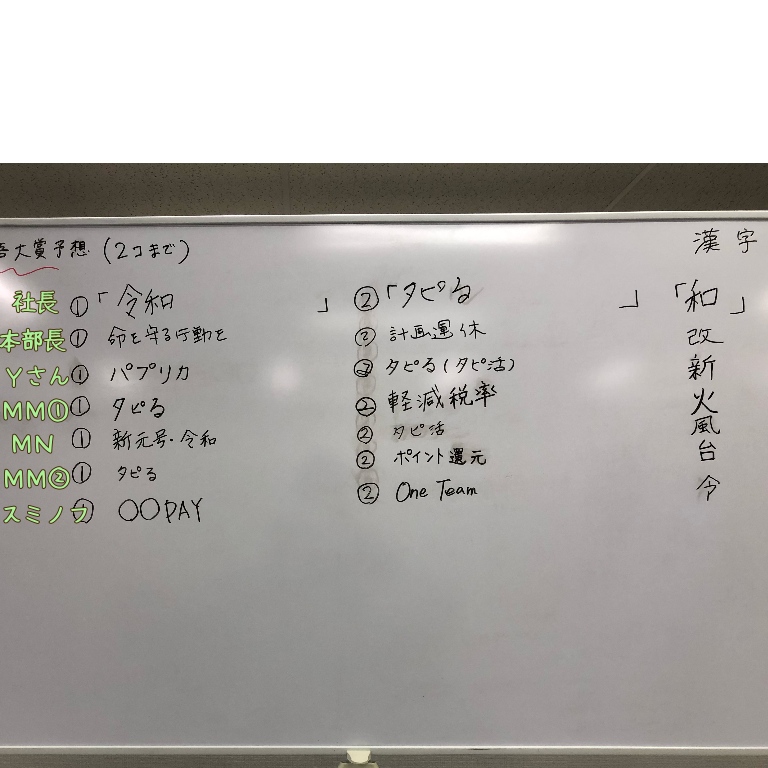 語大賞予想(2コまで) 漢字
社長 ①「令和 」 ②「タピる 」 「和」
本部長 ① 命を守る行動を ② 計画運休 改
Yさん ① パプリカ ② タピる(タピ活) 新
MM① ① タピる ② 軽減税率 火
MN ① 新元号・令和 ② タピ活 風
MM② ① タピる ② ポイント還元 台
スミノフ ① 〇〇PAY ② One Team 令